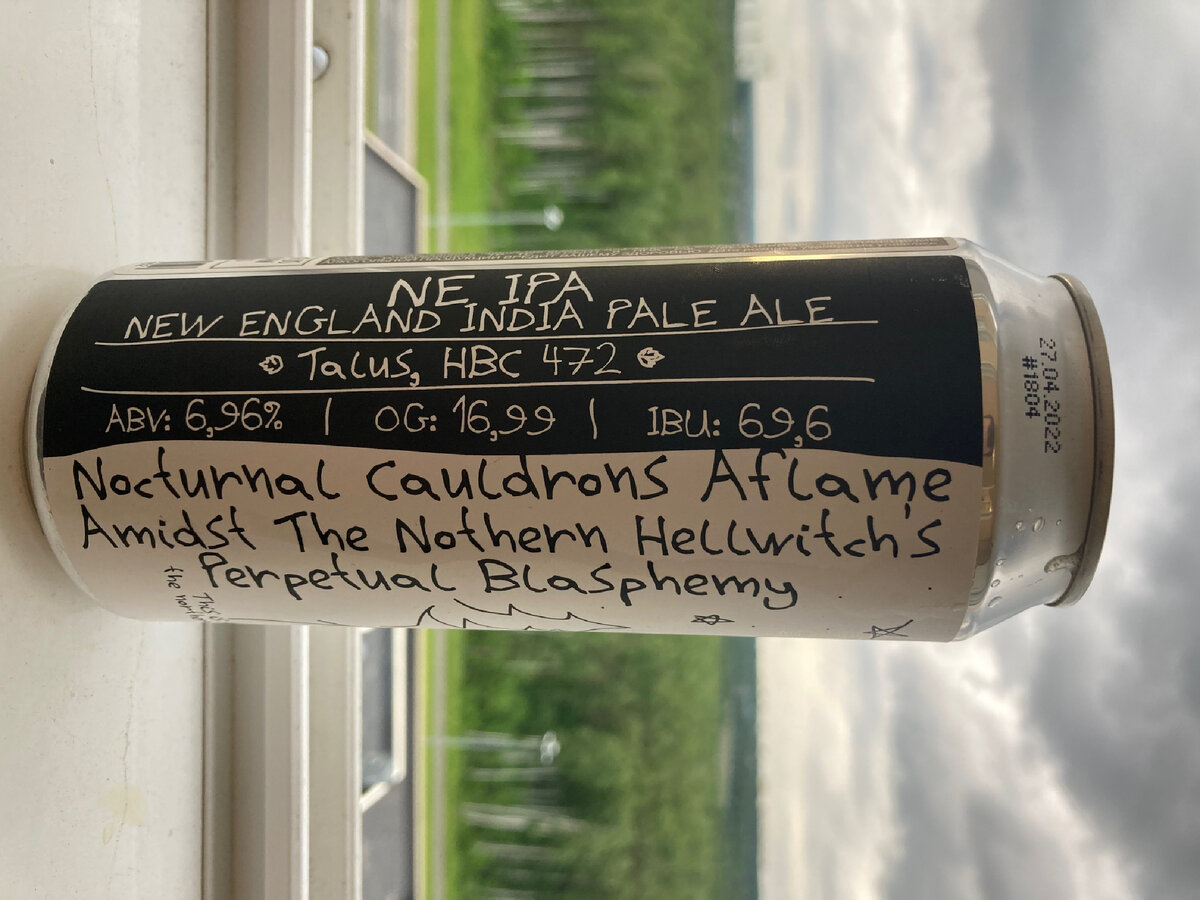 NE IPA
NEW ENGLAND INDIA PALE ALE
Talus, HBC 472
ABV: 6,96% | OG: 16,99 | IBU: 69,6
Nocturnal Cauldrons Aflame
Amidst The Nothern Hellwitch's
Perpetual Blasphemy
the
27.04.2022
#1804